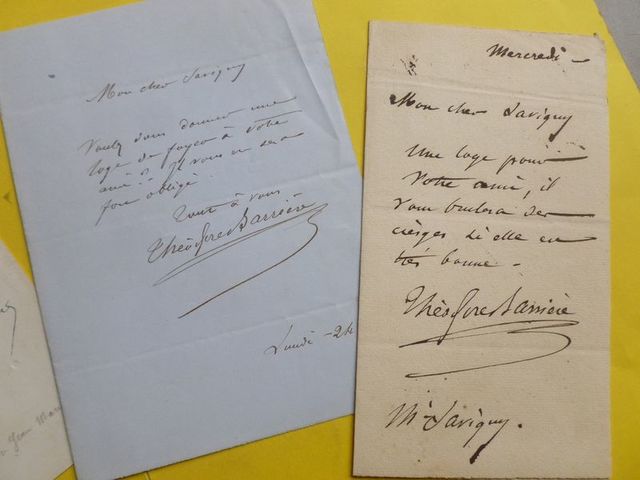 Mon cher Savigny
Voulez vous donner une
loge de foyer à votre
ami ? Il vous en sera
fort obligé.
Tout à vous
Théodore Barrière
Lundi - 24
Mercredi -
Mon cher Savigny
Une loge pour
votre ami, il
vous brulera des
cierges si elle est
très bonne -
Théodore Barrière
Mr Savigny.
Jean